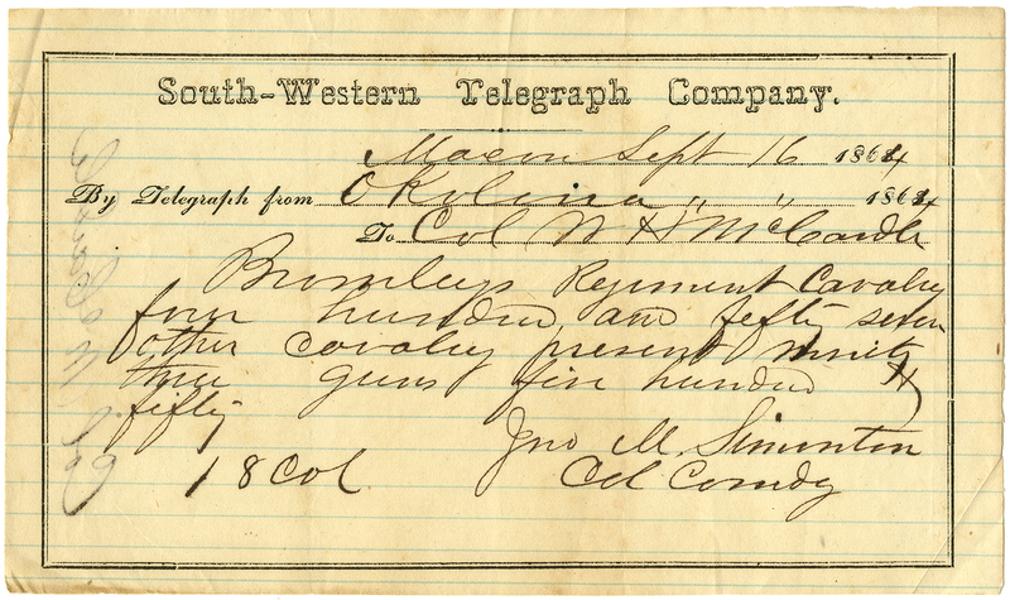 South-Western Telegraph Company.
Macon Sept 16 1864
By Telegraph from Okolona " " 1864
To Col W H McCardle
Brumleys Regiment Cavalry
four hundred and fifty seven
other cavalry present ninety
three guns five hundred
fifty
Jno M. Simonton
Col Comdg
18 Col